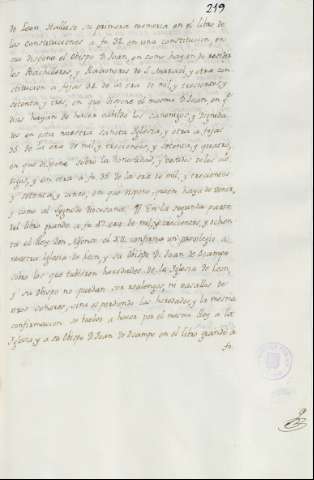 219
de Leon. Hallase su primera memoria en el libro de
las Constituciones a fo. 32. en una constitucion, en
que dispone el Obispo D. Juan, en como hayan de residir
los Bachilleres, y Racioneros de S. Marcos, y otra con
stitucion a fojas 32. de la era de mil, y trescientos, y
setenta, y tres, en que dispone el mismo D. Juan, en q.
dias hayan de hacer cabildo los Canonigos, y Dignida
des en esta nuestra Santa Iglesia, y otra a fojas
35. de la era de mil, y trescientos, y setenta, y quatro,
en que dispone sobre la y
y en otra a fo. 35. de la era de mil, y trescientos
y setenta, y cinco, en que dispone,
y como al segundo En la segunda parte
del libro grande a fo. era de mil, y trescientos, y ochen
ta el Rey Don Alonso el XI. confirma un privilegio a
nuestra Iglesia de Leon, y a su Obispo D. Juan de Ocampo
sobre los que tubieren heredades de la Iglesia de Leon,
y su Obispo no puedan ser realengos, ni vasallos de
otros señores, sino es perdiendo las heredades, y la mesma
confirmacion se buelve a hacer por el mesmo Rey a la
Iglesia, y a su Obispo D. Juan de Ocampo en el libro grande a
fo.